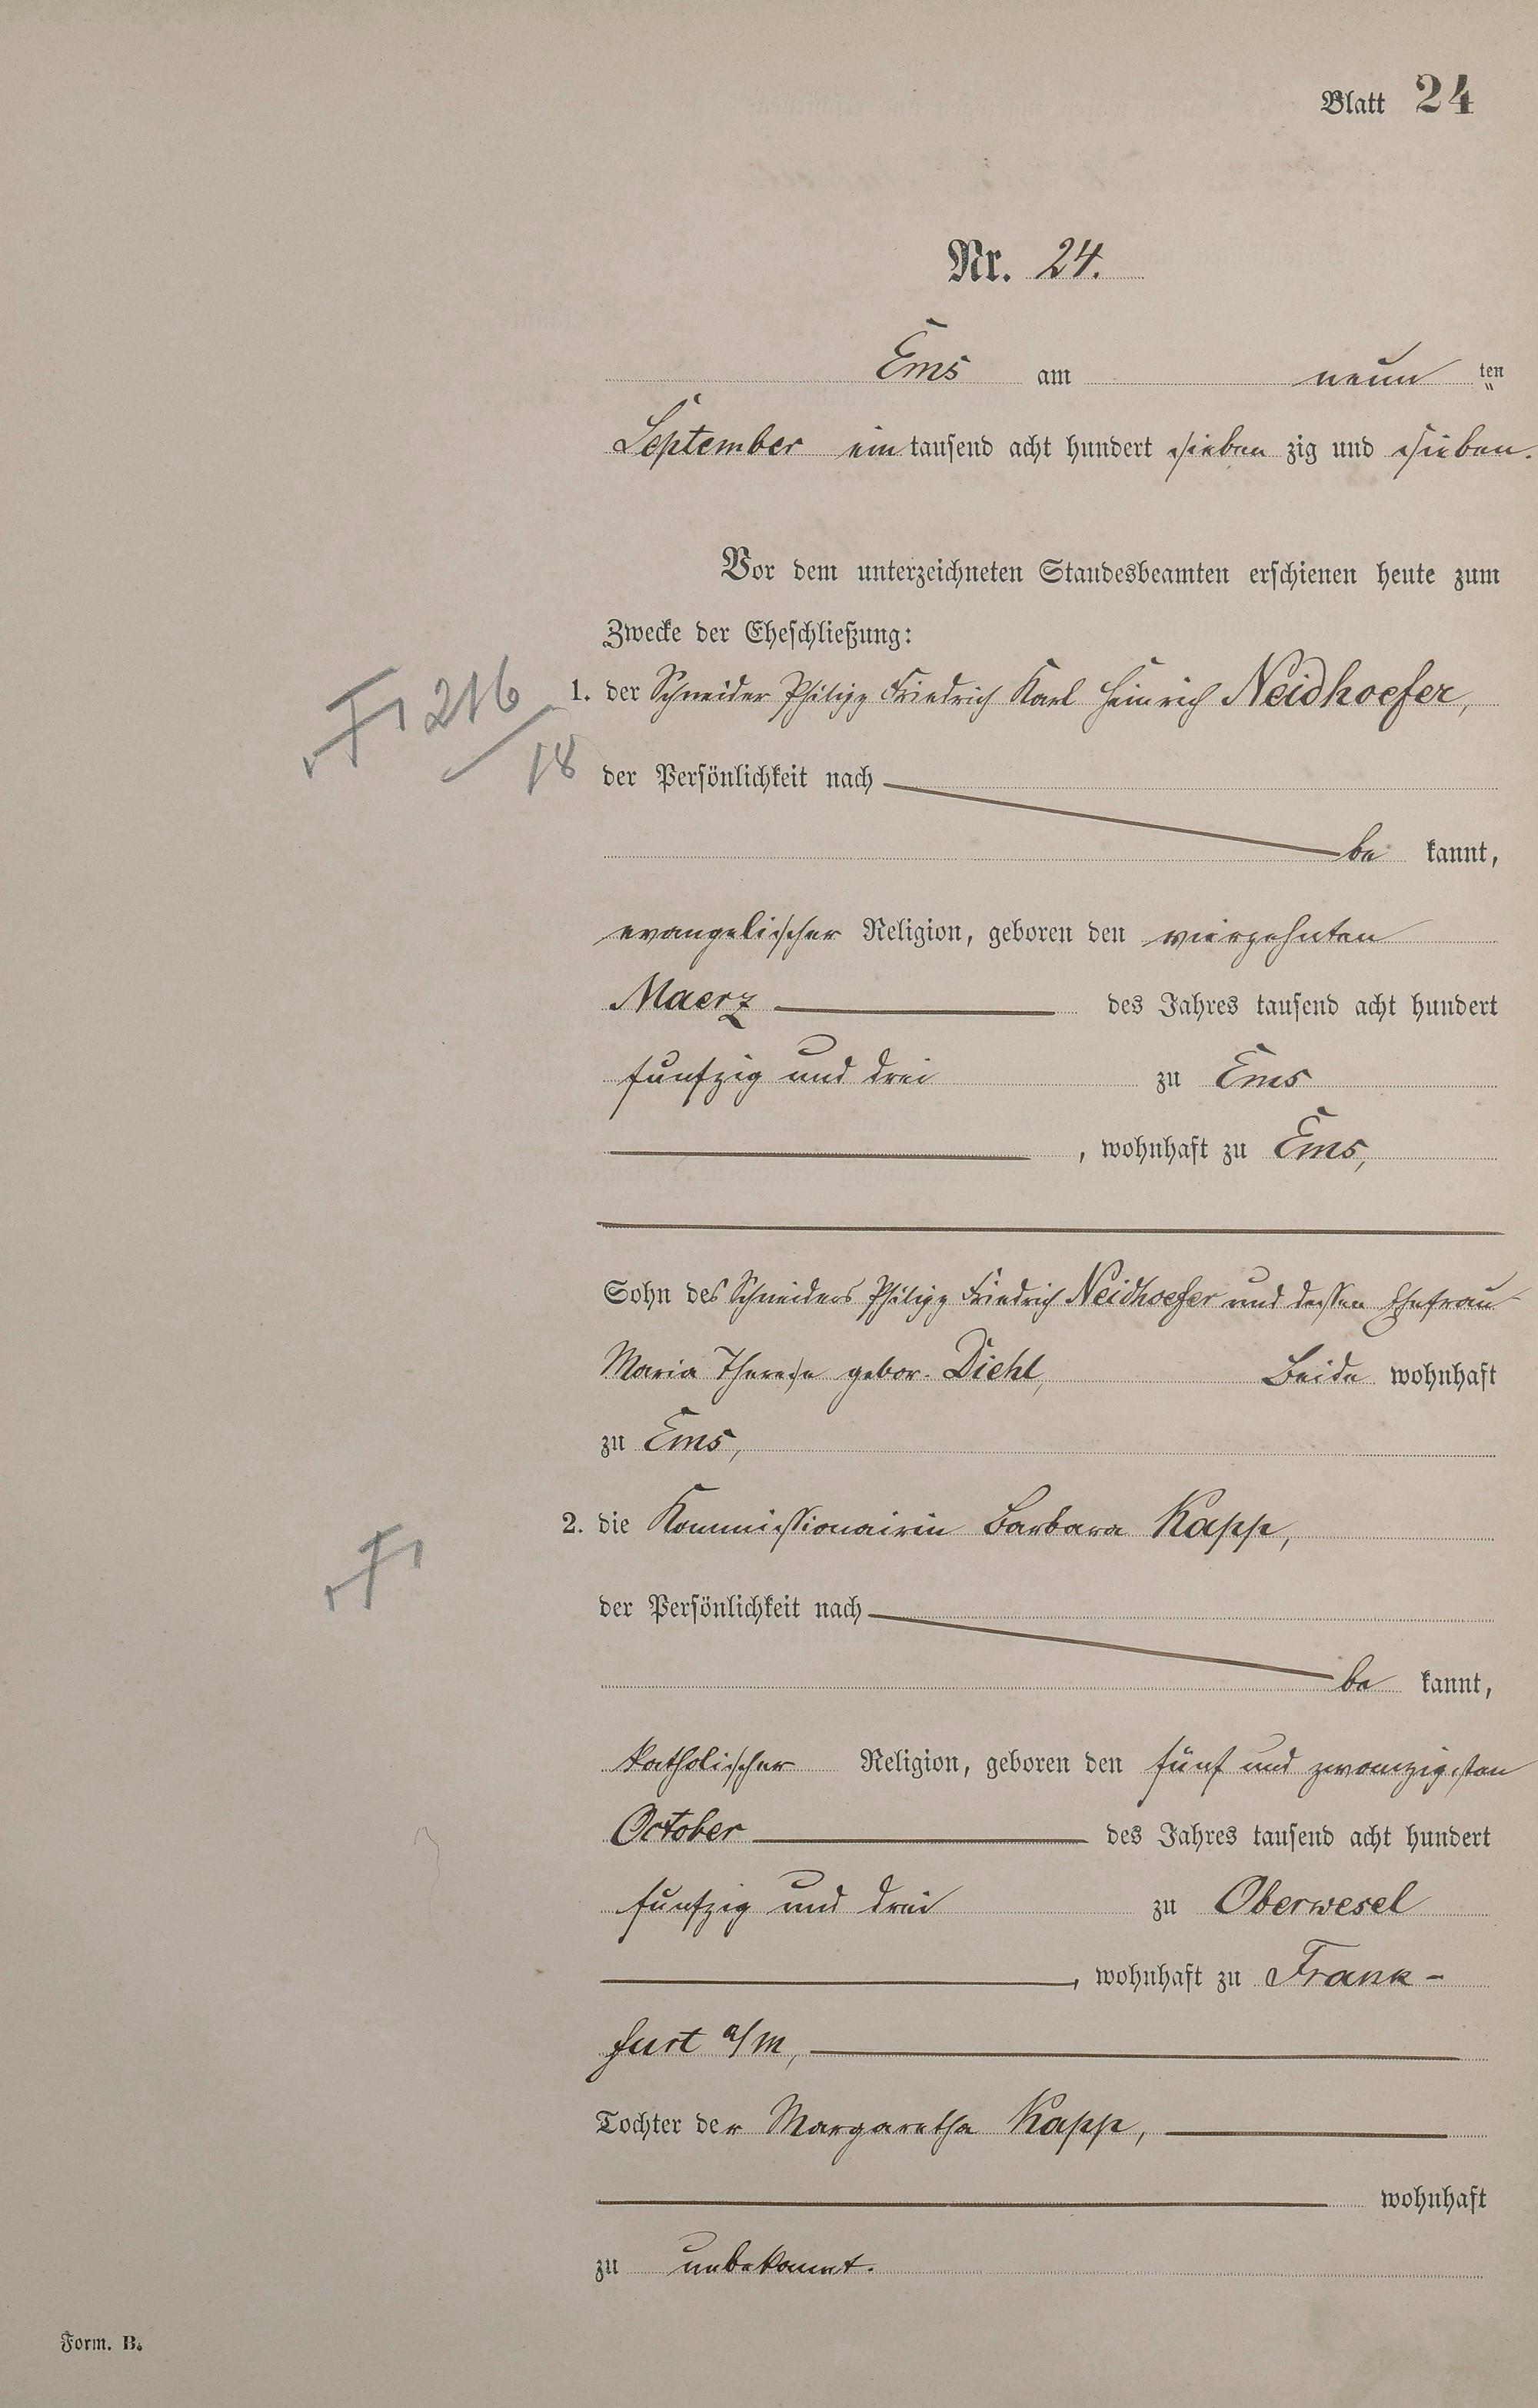 Blatt 24
Nr. 24.
Ems am neun ten
September ein tausend acht hundert sieben zig und sieben.
Vor dem unterzeichneten Standesbeamten erschienen heute zum
Zwecke der Eheschließung:
1. der Schneider Philipp Friedrich Karl Heinrich Neidhoefer,
216
18
der Persönlichkeit nach
be kannt,
evangelischer Religion, geboren den vierzehnten
Maerz des Jahres tausend acht hundert
funfzig und drei zu Ems
, wohnhaft zu Ems,
Sohn des Schneiders Philipp Friedrich Neidhoefer und dessen Ehefrau
Maria Therese gebor. Diehl, Beide wohnhaft
zu Ems,
2. die Kommissionairin Barbara Kapp,
der Persönlichkeit nach
be kannt,
katholischer Religion, geboren den fünf und zwanzigsten
October des Jahres tausend acht hundert
funfzig und drei zu Oberwesel
, wohnhaft zu Frank-
furt a/M,
Tochter der Margaretha Kapp,
wohnhaft
zu unbekannt.
Form. B.